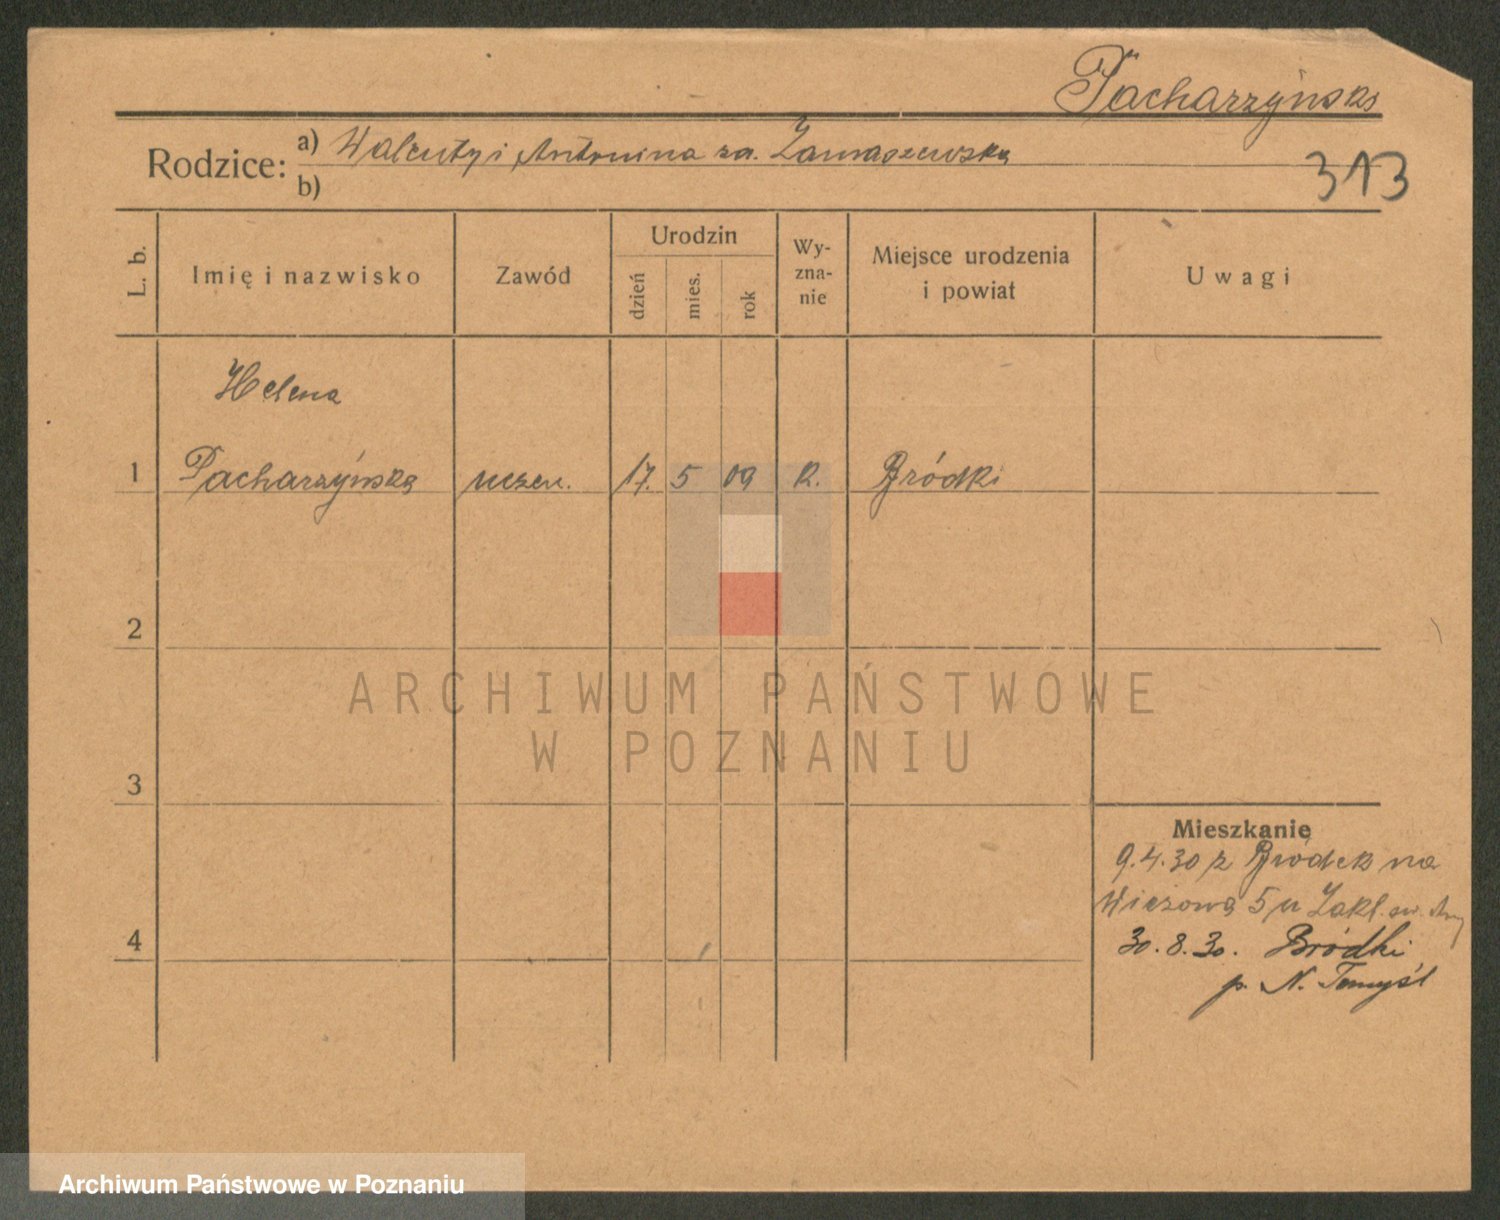 Pacharzyński
Rodzice: a) Walenty i Antonina za.
b)
313
L. b.
Imię i nazwisko
Zawód
Urodzin
dzień
mies.
rok
Wy-
zna-
nie
Miejsce urodzenia
i powiat
Uwagi
Helena
1 Pacharzyńska uczen. 17. 5 09 k. Bródki
2
3
4
Mieszkanie
9.4.30 z Bródek na
Wieżową 5 u Zakł. św.
30.8.30. Bródki
p. N. Tomyśl
ARCHIWUM PAŃSTWOWE
W POZNANIU
Archiwum Państwowe w Poznaniu